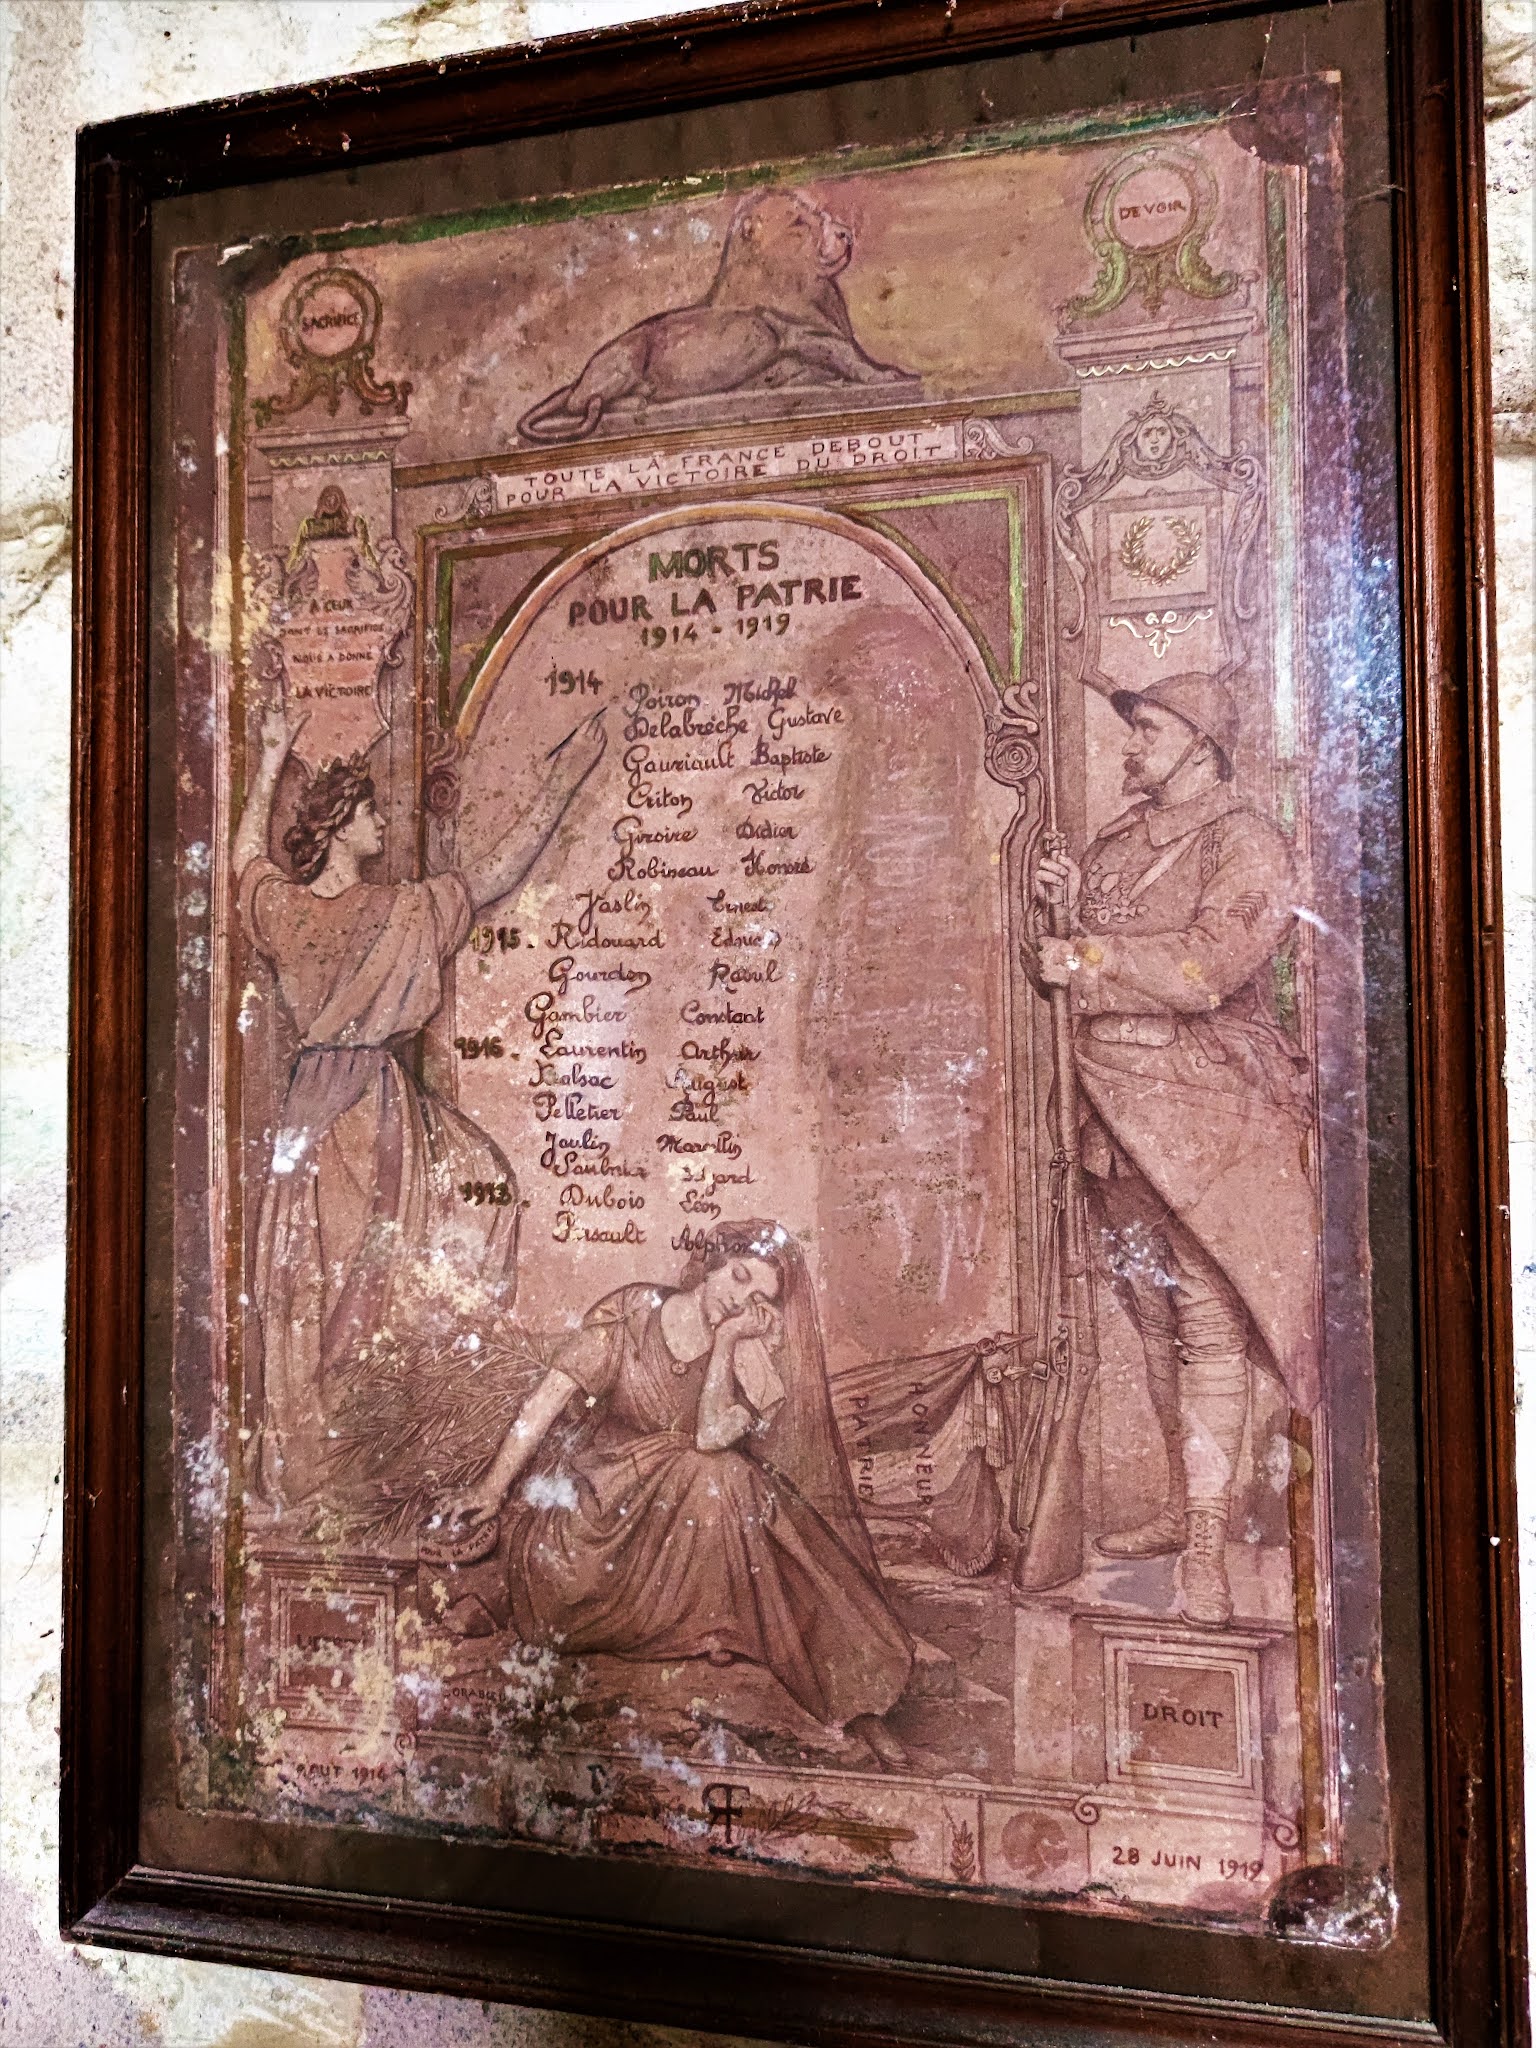 DEVOIR
SACRIFICE
TOUTE LA FRANCE DEBOUT
POUR LA VICTOIRE DU DROIT
MORTS
POUR LA PATRIE
1914 - 1919
A CEUX
DONT LE SACRIFICE
NOUS A DONNE
LA VICTOIRE
1914 Poiron Michel
Delabrèche Gustave
Gauriault Baptiste
Criton Victor
Giroire Didier
Robineau Honoré
Jaslin Ernest
1915. Ridouard
Gourdon Raoul
Gambier Constant
1916. Laurentin Arthur
August
Pelletier Paul
Joulin Marcellin
Saulnier
Dubois Léon
HONNEUR
PATRIE
POUR LA
DROIT
AOUT 1914
RF
28 JUIN 1919